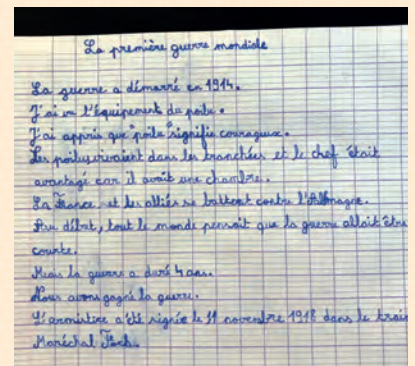 La première guerre mondiale
La guerre a démarré en 1914.
J'ai vu l'équipement du poilu.
J'ai appris que "poilu" signifie courageux.
Les poilus vivaient dans les tranchées et le chef était
avantagé car il avait une chambre.
La France et les alliés se battent contre l'Allemagne.
Au début, tout le monde pensait que la guerre allait être
courte.
Mais la guerre a duré 4 ans.
Nous avons gagné la guerre.
L'armistice a été signée le 11 novembre 1918 dans le train
Maréchal Foch.